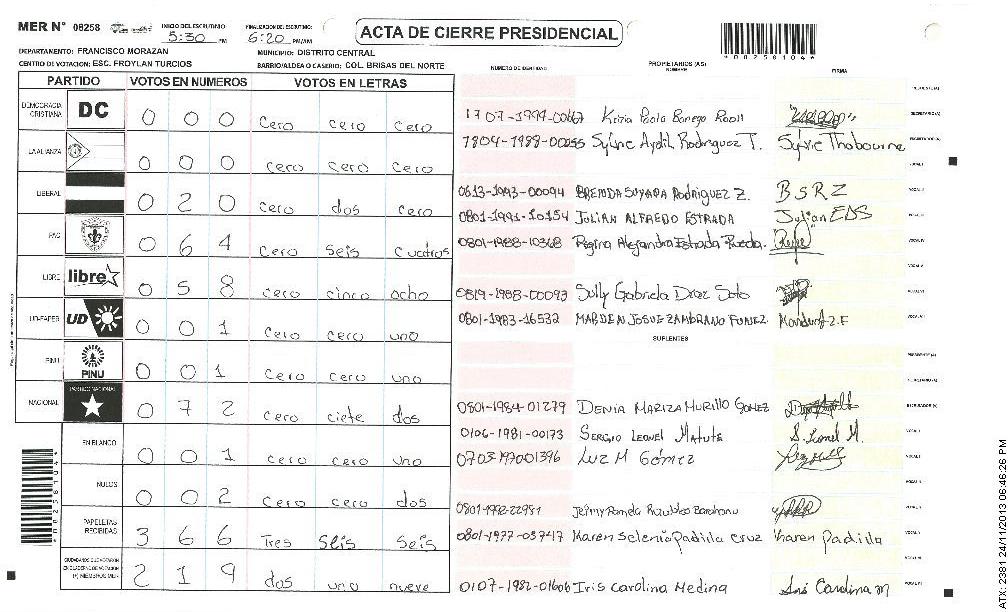 MER N° 08258
INICIO DEL ESCRUTINIO: 5:30 PM
FINALIZACION DEL ESCRUTINIO: 6:20 PM/AM
ACTA DE CIERRE PRESIDENCIAL
*00258104*
DEPARTAMENTO: FRANCISCO MORAZAN
MUNICIPIO: DISTRITO CENTRAL
CENTRO DE VOTACION: ESC. FROYLAN TURCIOS
BARRIO/ALDEA O CASERIO: COL. BRISAS DEL NORTE
NUMERO DE IDENTIDAD PROPIETARIOS (AS) NOMBRE FIRMA
PARTIDO VOTOS EN NUMEROS VOTOS EN LETRAS
DEMOCRACIA CRISTIANA DC 0 0 0 cero cero cero
LA ALIANZA 0 0 0 cero cero cero
LIBERAL 0 2 0 cero dos cero
PAC 0 6 4 cero seis cuatros
LIBRE libre 0 5 8 cero cinco ocho
UD-FAPER UD 0 0 1 cero cero uno
PINU PINU 0 0 1 cero cero uno
NACIONAL PARTIDO NACIONAL 0 7 2 cero ciete dos
EN BLANCO 0 0 1 cero cero uno
NULOS 0 0 2 cero cero dos
PAPELETAS RECIBIDAS 3 6 6 Tres seis seis
CIUDADANOS QUE VOTARON EN CUADERNO DE VOTACION (+) MIEMBROS MER 2 1 9 dos uno nueve
Sylvie Aydil Rodriguez T. Sylvie Thobourne
0613-1993-00094 BRENDA SUYAPA Rodriguez Z. BSRZ
0801-1991-10154 JULIAN ALFREDO ESTRADA Julian EDS
0801-1988-10368 Regina Alejandra Estrada Rueda.
0819-1988-00093 Sully Gabriela Diaz Soto
0801-1983-16532 MARDEN JOSUE ZAMBRANO FUNEZ.
SUPLENTES
0801-1984-01279 DENIA MARIZA MURILLO GOMEZ
0106-1981-00173 SERGIO LEONEL Matute S. Lionel M.
0703197001396 Luz M Gómez
0801-1992-22981
0801-1977-05717 Karen Selenia Padilla Cruz Karen Padilla
0107-1982-01606 Iris Carolina Medina
*00258104*
ATX: 2381 24/11/2013 06:46:26 PM